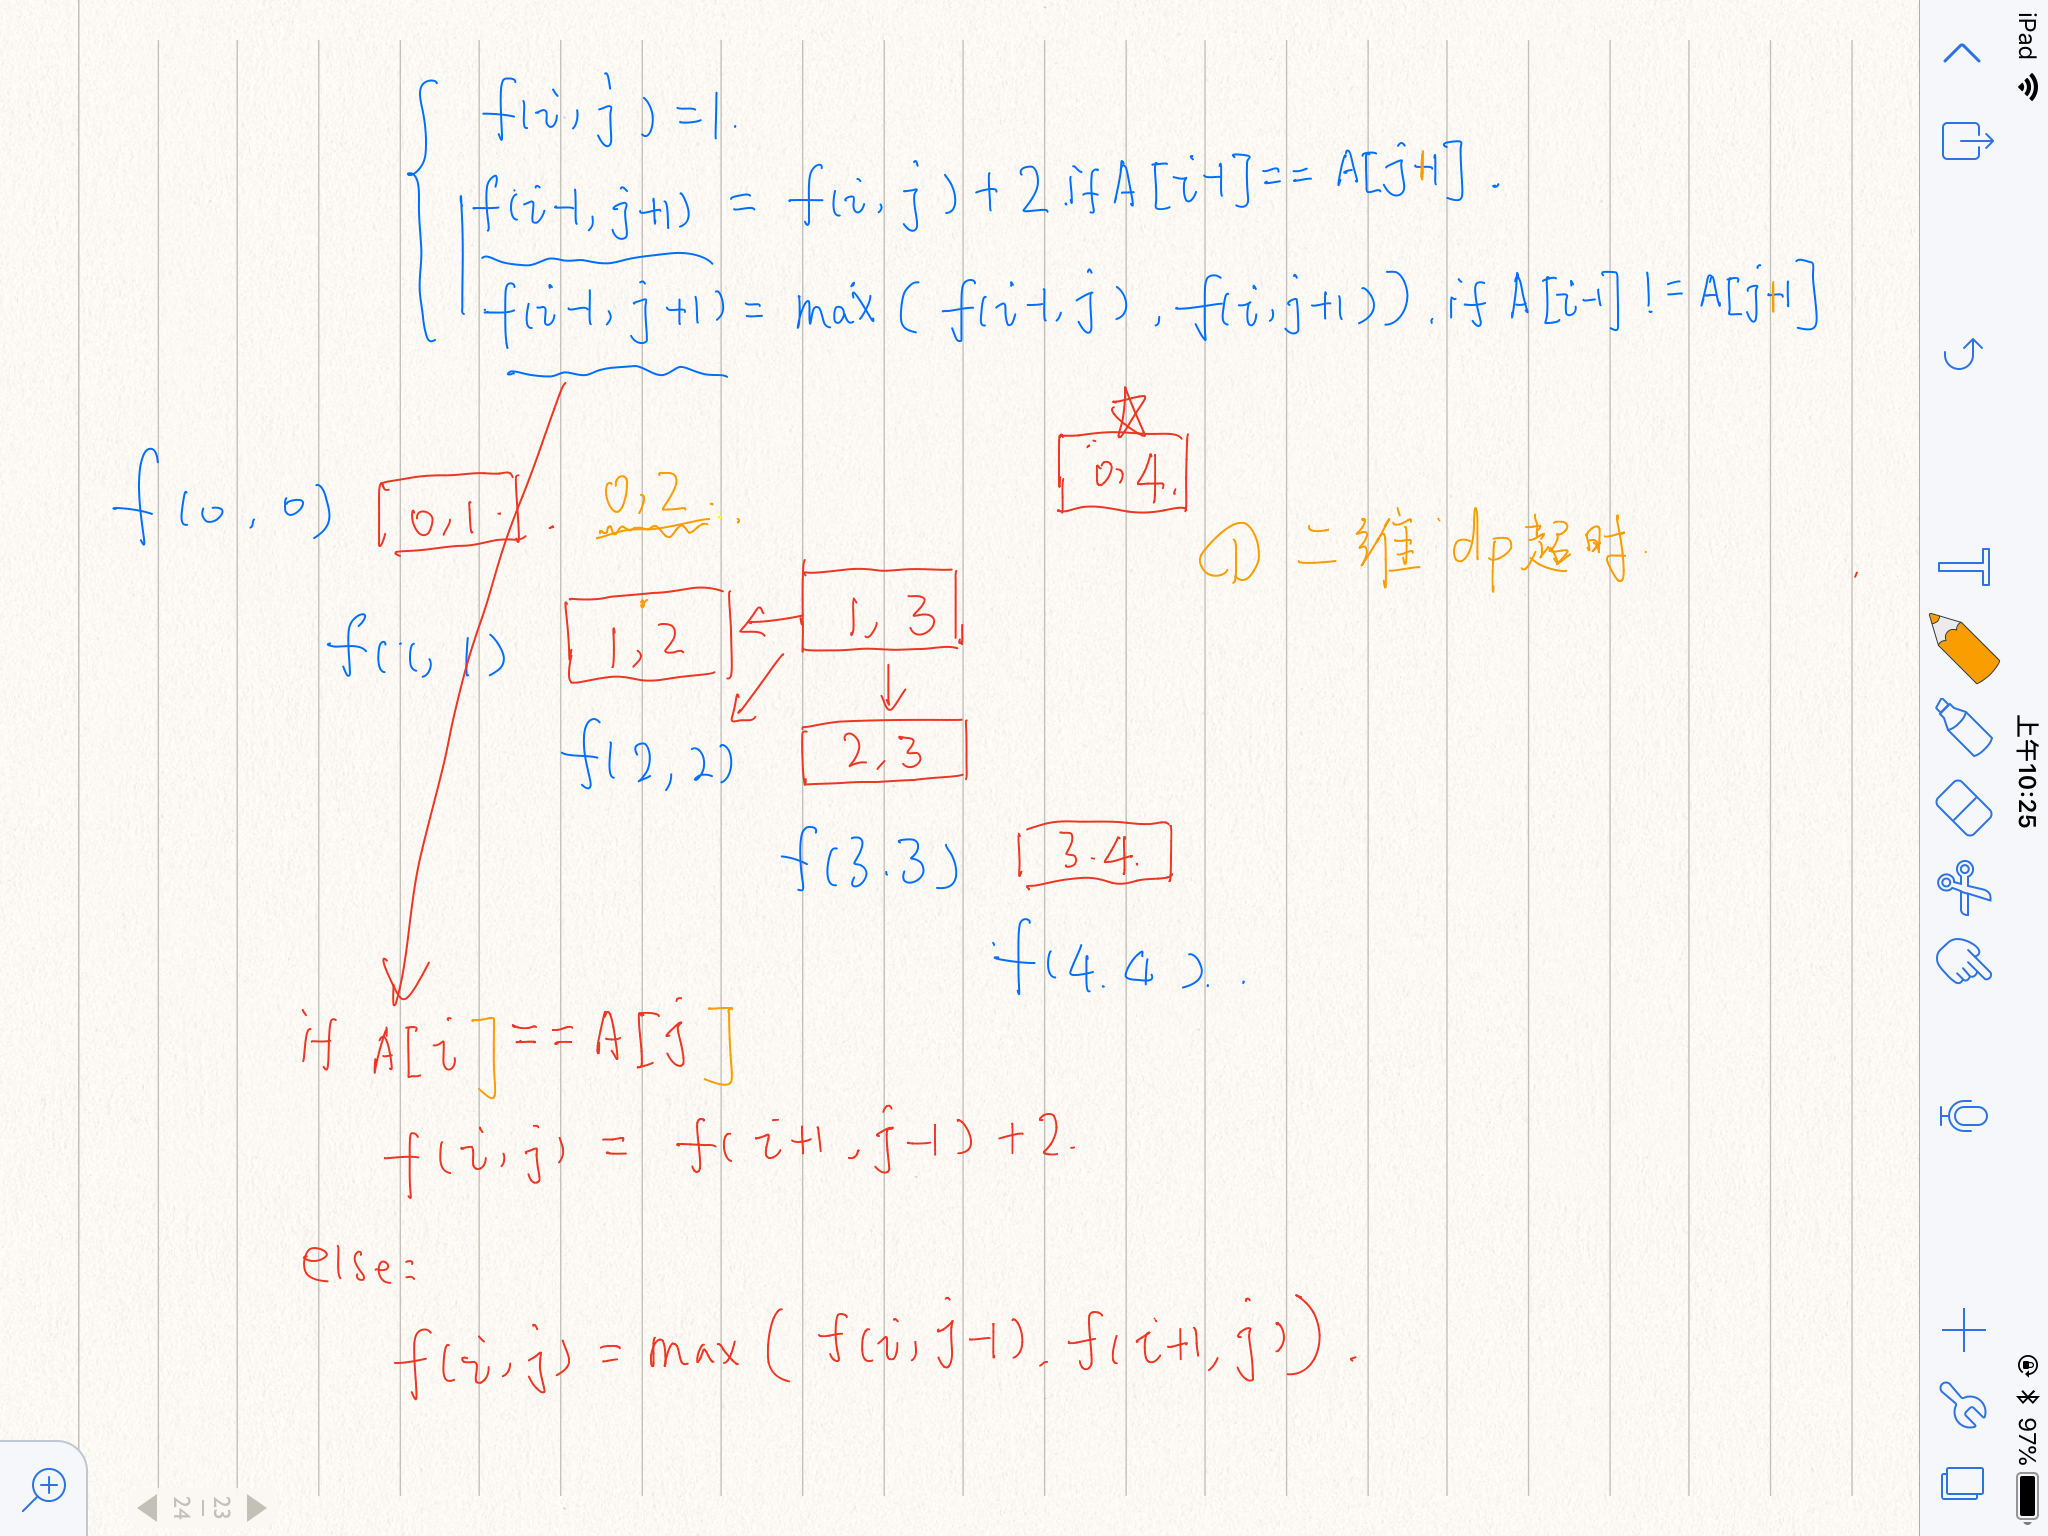 f(i,j)=1.
f(i-1,j+1) = f(i,j)+2.if A[i-1]== A[j+1].
f(i-1,j+1)= max(f(i-1,j),f(i,j+1)).if A[i-1]!=A[j+1]
0,4.
f(0,0) 0,1. 0,2.
① 二维dp超时.
f(1,1) 1,2 1,3
f(2,2) 2,3
f(3.3) 3.4.
f(4.4)..
if A[i]==A[j]
f(i,j) = f(i+1,j-1)+2.
else:
f(i,j) = max(f(i,j-1).f(i+1,j)).
iPad
上午10:25
97%
23-24